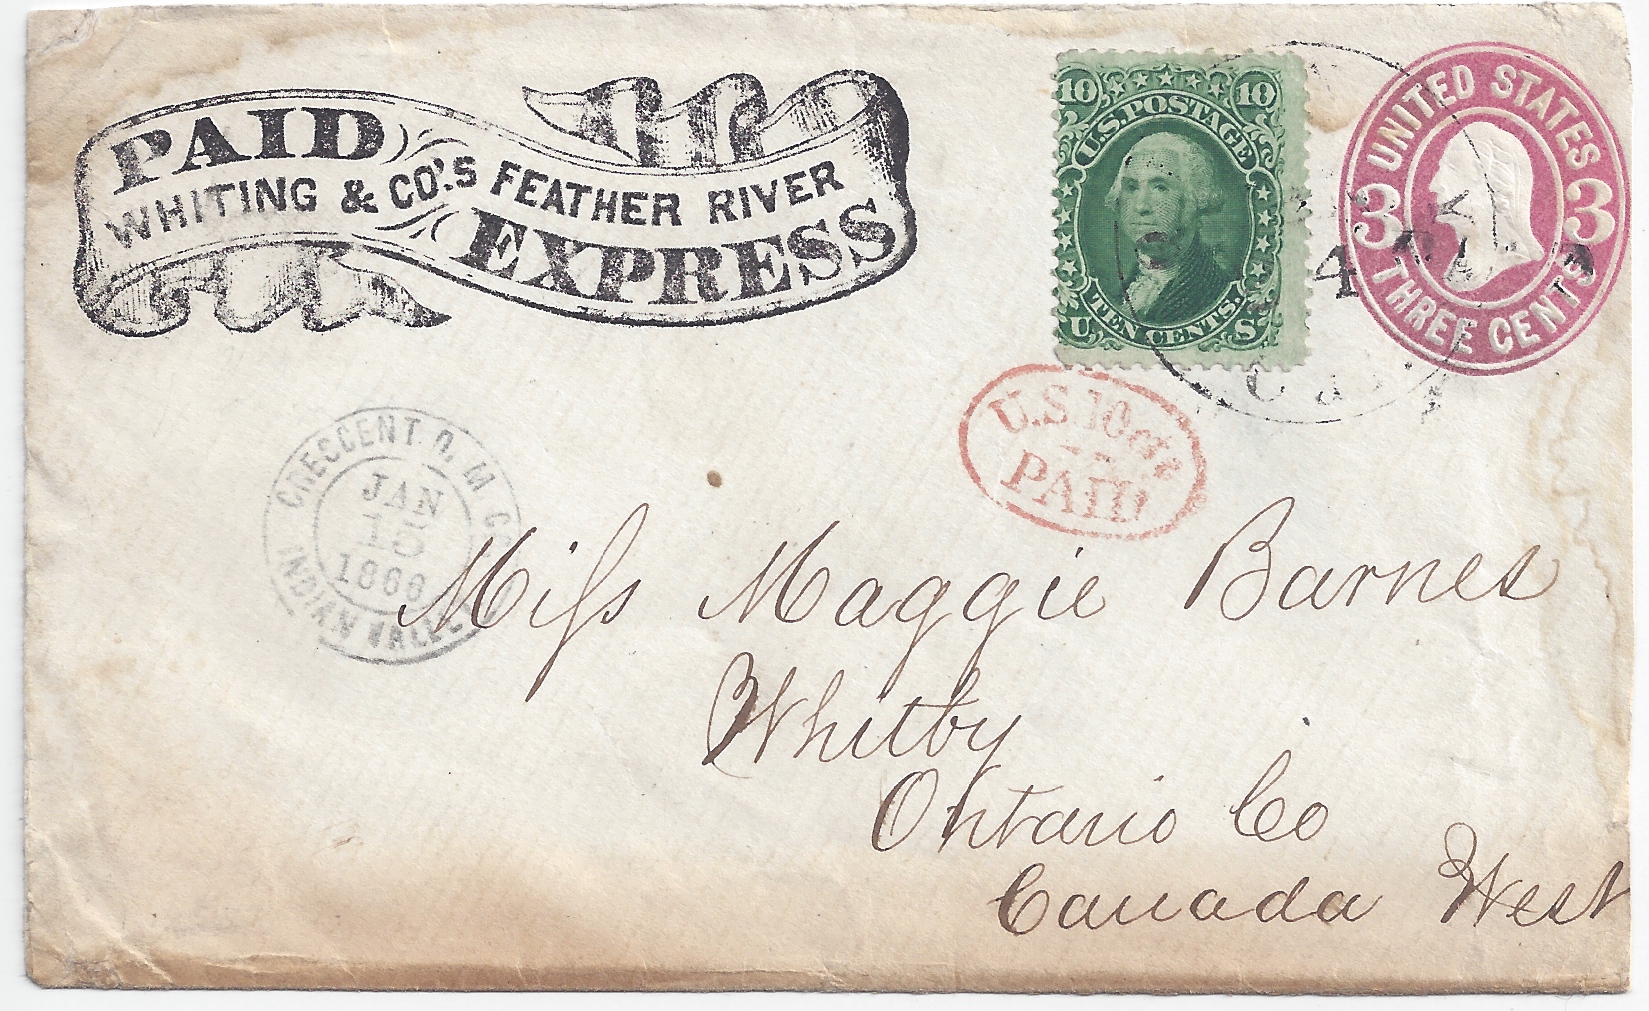 PAID
WHITING & CO'.S FEATHER RIVER
EXPRESS
10 10
U.S. POSTAGE
TEN CENTS.
U. S
UNITED STATES
3 3
THREE CENTS
4
U.S. 10 cts
PAID
CRESCENT Q. M. CO
JAN
15
1866
INDIAN VALLEY
Miss Maggie Barnes
Whitby
Ontario Co
Canada West